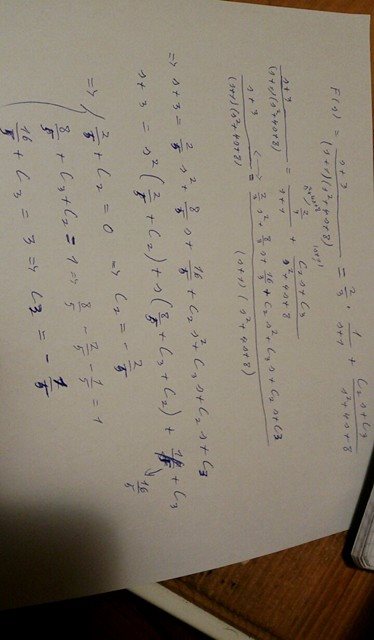 F(s) = s+3 / (s+1)(s²+4s+8) = 2/3 · 1/s+1 + C₂s+C₃ / s²+4s+8
s²+4s+8 (s+1)
s+3 / (s+1)(s²+4s+8) = 2/3 / s+1 + C₂s+C₃ / s²+4s+8
s+3 / (s+1)(s²+4s+8) = 2/3 s² + 8/3 s + 16/3 + C₂s² + C₃s + C₂s + C3 / (s+1)(s²+4s+8)
=> s+3 = 2/5 s² + 8/5 s + 16/5 + C₂s² + C₃s + C₂s + C₃
s+3 = s²(2/5 + C₂) + s(8/5 + C₃ + C₂) + 16/5 + C₃
16/5
=> 2/5 + C₂ = 0 => C₂ = -2/5
8/5 + C₃ + C₂ = 1 => 8/5 - 2/5 - 1/5 = 1
16/5 + C₃ = 3 => C3 = -1/5